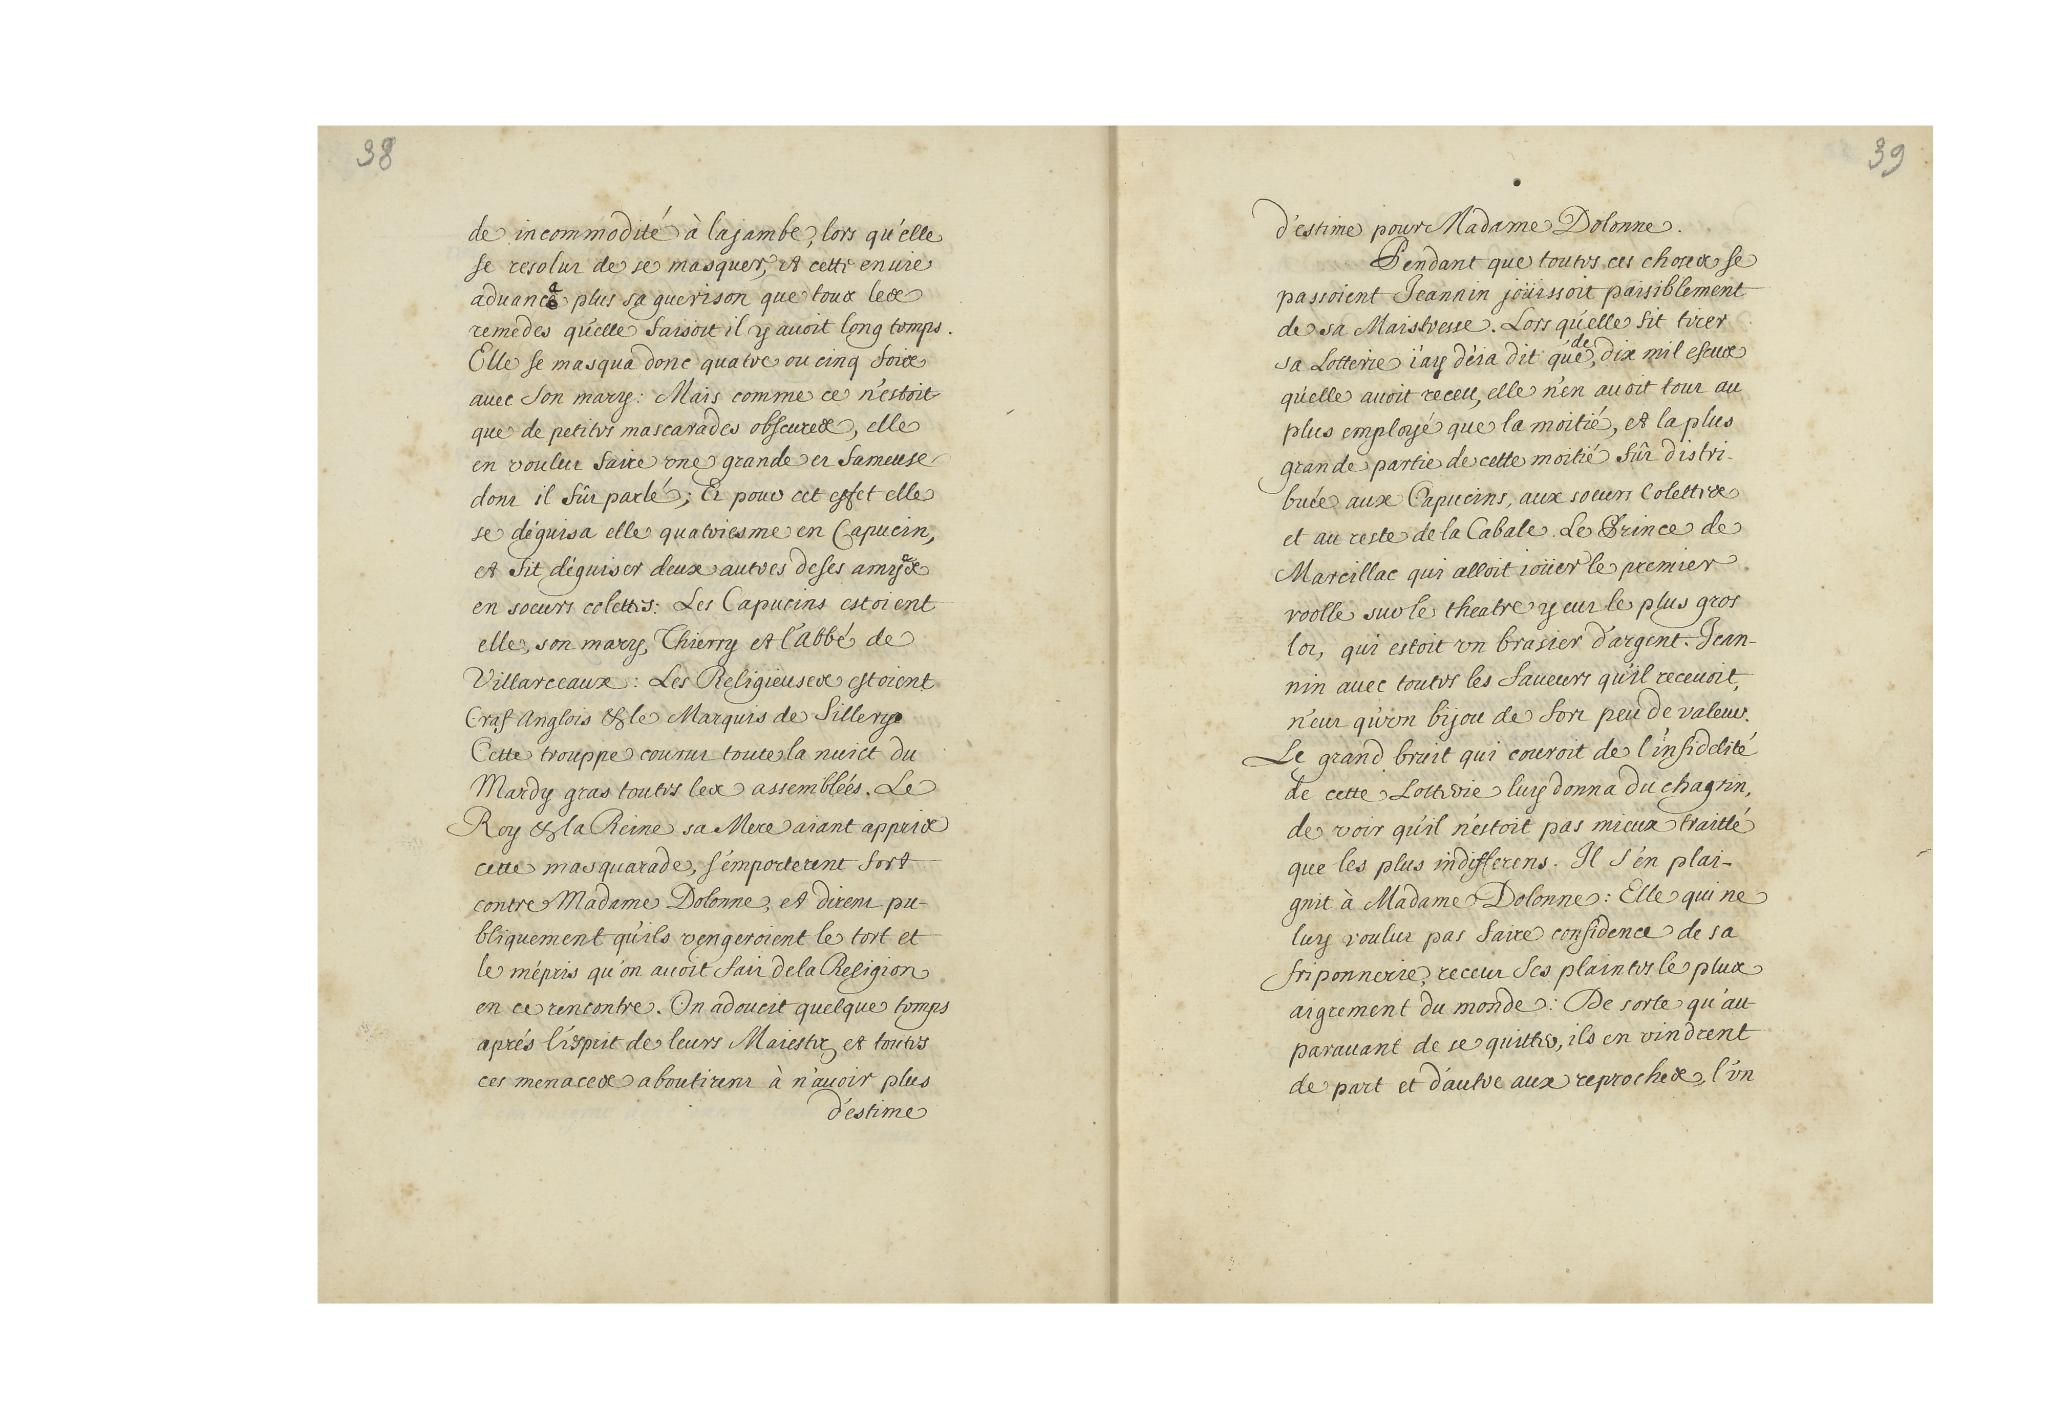 38
de incommodité à la jambe, lors qu'elle
se resolut de se masquer, et cette enuie
aduança plus sa guerison que tous les
remedes qu'elle faisoit il y auoit long temps.
Elle se masqua donc quatre ou cinq fois
auec son mary: Mais comme ce n'estoit
que de petites mascarades obscures, elle
en voulut faire vne grande et fameuse
dont il fût parlé; Et pour cet effet elle
se déguisa elle quatriesme en Capucin,
et fit déguiser deux autres de ses amys
en soeurs colettes: Les Capucins estoient
elle, son mary, Thierry et l'Abbé de
Villarceaux: Les Religieuses estoient
Craf Anglois & le Marquis de Sillery
Cette trouppe courut toute la nuict du
Mardy gras toutes les assemblées. Le
Roy & la Reine sa Mere aiant appris
cette masquarade, s'emporterent fort
contre Madame Dolonne, et dirent pu-
bliquement qu'ils vengeroient le tort et
le mépris qu'on auoit fait de la Religion
en ce rencontre. On adoucit quelque temps
aprés l'esprit de leurs Maiestez et toutes
ces menaces aboutirent à n'auoir plus
d'estime
39
d'estime pour Madame Dolonne.
Pendant que toutes ces choses se
passoient Jeannin joüissoit paisiblement
de sa Maistresse. Lors qu'elle fit tirer
sa Lotterie i'ay déia dit que de, dix mil escus
qu'elle auoit receu, elle n'en auoit tout au
plus employé que la moitié, et la plus
grande partie de cette moitié fût distri-
buée aux Capucins, aux soeurs Colettes
et au reste de la Cabale. Le Prince de
Marcillac qui alloit ioüer le premier
roolle sur le theatre y eut le plus gros
lot, qui estoit vn brasier d'argent. Jean-
nin auec toutes les faueurs qu'il receuoit,
n'eut qu'vn bijou de fort peu de valeur.
Le grand bruit qui couroit de l'infidelité
de cette Lotterie luy donna du chagrin,
de voir qu'il n'estoit pas mieux traitté
que les plus indifferens. Il s'en plai-
gnit à Madame Dolonne: Elle qui ne
luy voulut pas faire confidence de sa
friponnerie, receut ses plaintes le plus
aigrement du monde: De sorte qu'au
parauant de se quitter, ils en vindrent
de part et d'autre aux reproches, l'vn